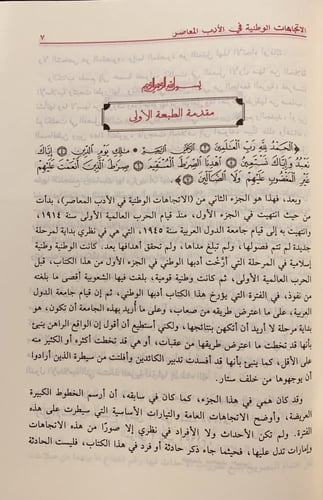 الاتجاهات الوطنية في الأدب المعاصر ٧
بسم الله الرحمن الرحيم
مقدمة الطبعة الأولى
﴿الْحَمْدُ لِلَّهِ رَبِّ الْعَالَمِينَ ۝ الرَّحْمَنِ الرَّحِيمِ ۝ مَالِكِ يَوْمِ الدِّينِ ۝ إِيَّاكَ
نَعْبُدُ وَإِيَّاكَ نَسْتَعِينُ ۝ اهْدِنَا الصِّرَاطَ الْمُسْتَقِيمَ ۝ صِرَاطَ الَّذِينَ أَنْعَمْتَ عَلَيْهِمْ
غَيْرِ الْمَغْضُوبِ عَلَيْهِمْ وَلَا الضَّالِّينَ ۝﴾
وبعد، فهذا هو الجزء الثاني من (الاتجاهات الوطنية في الأدب المعاصر)، بدأت
من حيث انتهيت في الجزء الأول، منذ قيام الحرب العالمية الأولى سنة ١٩١٤،
وانتهيت به إلى قيام جامعة الدول العربية سنة ١٩٤٥، التي هي في نظري بداية لمرحلة
جديدة لم تتم فصولها، ولم تبلغ مداها، ولم تحقق أهدافها بعد. كانت الوطنية وطنية
إسلامية في المرحلة التي أرّخْت أدبها الوطني في الجزء الأول من هذا الكتاب، قبل
الحرب العالمية الأولى، ثم كانت وطنية قومية، بلغت فيها الشعوبية أقصى ما بلغته
من نفوذ، في الفترة التي يؤرخ هذا الكتاب أدبها الوطني، ثم إن قيام جامعة الدول
العربية، على ما اعترض طريقه من صعاب، وعلى ما أُريد بهذه الجامعة أن تكون، هو
بداية مرحلة لا أريد أن أتكهن بنتائجها، ولكني أستطيع أن أقول إن الواقع الراهن ينبئ
بأنها قد تخطت ما اعترض طريقها من عقبات، أو هي قد تخطت أكثره أو الكثير منه
على الأقل، كما ينبئ بأنها قد أفسدت تدبير الكائدين وأفلتت من سيطرة الذين أرادوا
أن يوجهوها من خلف ستار.
وقد كان همي في هذا الجزء، كما كان في سابقه، أن أرسم الخطوط الكبيرة
العريضة، وأوضح الاتجاهات العامة والتيارات الأساسية التي سيطرت على هذه
الفترة. ولم تكن الأحداث ولا الأفراد في نظري إلا صورًا من هذه الاتجاهات
وإمارات تدل عليها، فحيثما جاء ذكر حادثة أو فرد في هذا الكتاب، فليست الحادثة